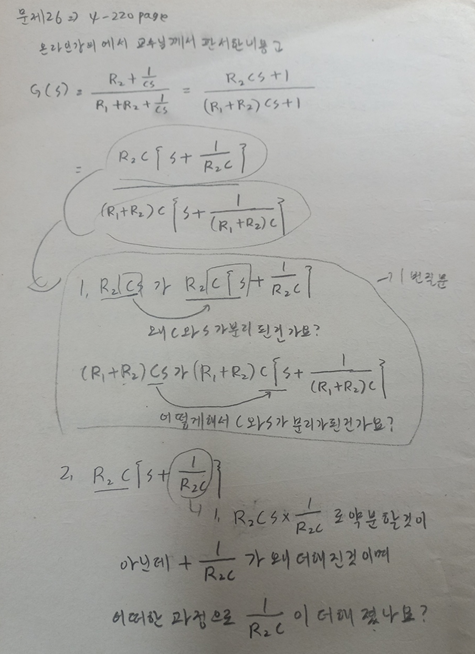 문제26 2) 4-220page
온라인강의에서 교수님께서 판서한내용
G(s) = (R₂ + 1/Cs) / (R₁ + R₂ + 1/Cs) = (R₂Cs+1) / ((R₁+R₂)Cs+1)
= R₂C[s + 1/(R₂C)] / (R₁+R₂)C[s + 1/((R₁+R₂)C)]
1, R₂Cs가 R₂C[s + 1/(R₂C)] → 1번질문
왜 C와 s가 분리 된건가요?
(R₁+R₂)Cs가 (R₁+R₂)C[s + 1/((R₁+R₂)C)]
어떻게해서 C와s가 분리가된건가요?
2, R₂C[s + 1/(R₂C)]
1, R₂Cs × 1/(R₂C) 로 약분할것이
아닌데 + 1/(R₂C) 가 왜 더해진것이며
어떠한 과정으로 1/(R₂C) 이 더해 졌나요?